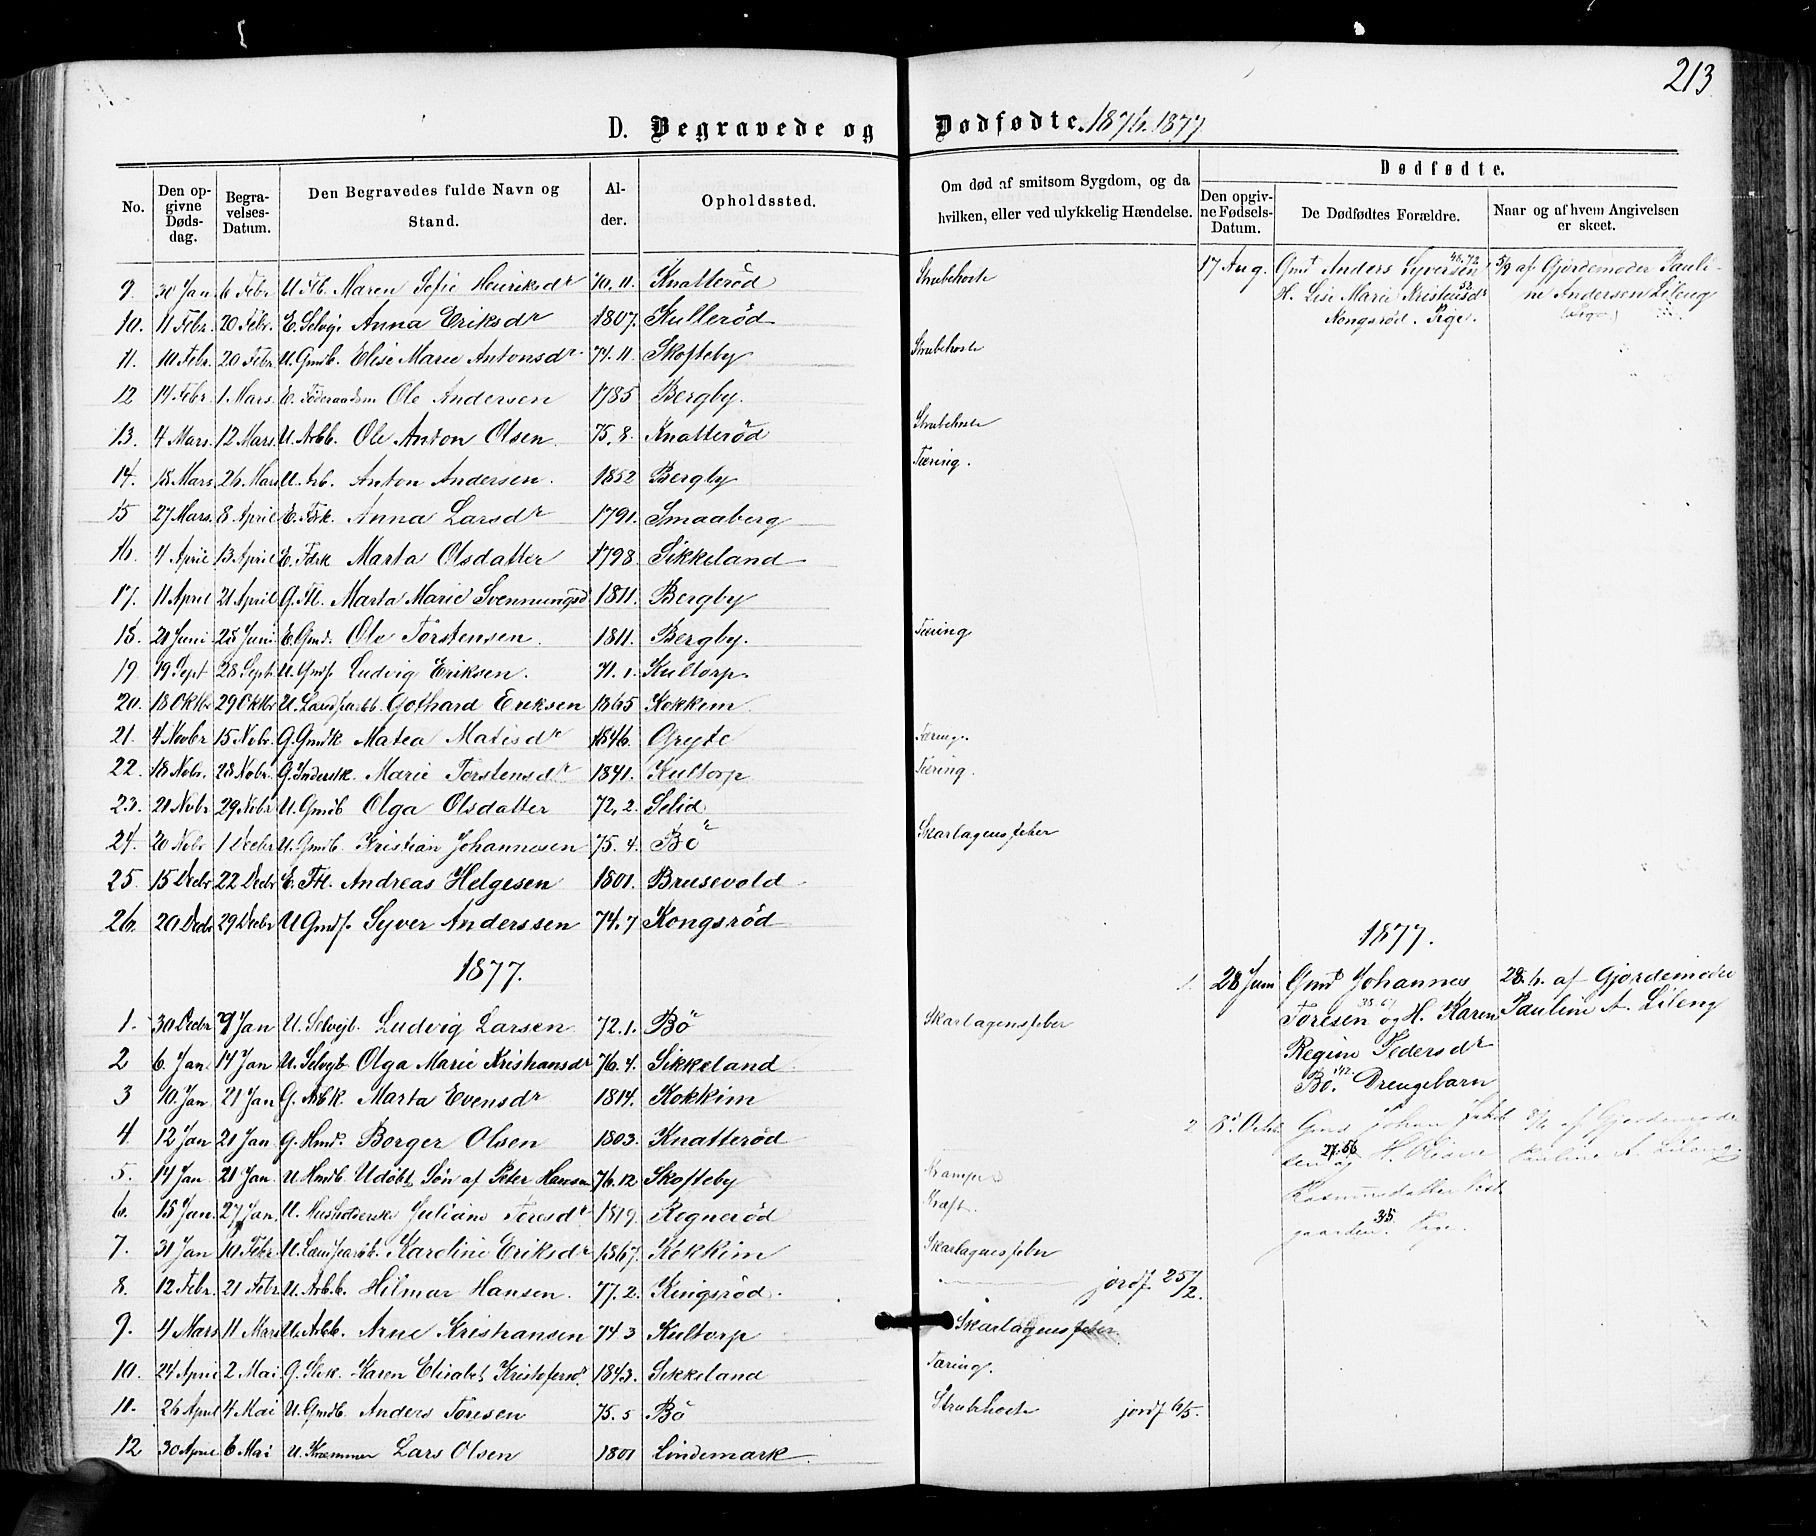 213
D. Begravede og Dødfødte. 1876. 1877
No.
Den opgivne Dødsdag.
Begravelses-Datum.
Den Begravedes fulde Navn og Stand.
Alder.
Opholdssted.
Om død af smitsom Sygdom, og da hvilken, eller ved ulykkelig Hændelse.
Dødfødte.
Den opgivne Fødsels-Datum.
De Dødfødtes Forældre.
Naar og af hvem Angivelsen er skeet.
9. 30 Jan 6 Febr U. Maren Sofie Henriksdr 70.11. Knatterød Strubehoste
10. 11 Febr. 20 Febr. E. Selvej. Anna Eriksdr 1807. Kullerød
11. 10 Febr. 20 Febr U. Gmdb. Elise Marie Antonsdr 74.11. Skofteby Strubehoste
12 14 Febr. 1 Mars. E. Føderaadsm Ole Andersen 1785 Bergby.
13. 4 Mars. 12 Mars. U. Arbb. Ole Anton Olsen. 75.8. Knatterød Strubehoste
14. 18 Mars. 26 Mars U. Arb. Anton Andersen. 1852 Bergby Tæring.
15 27 Mars. 8 April E. Fdrk. Anna Larsdr 1791. Smaaberg
16. 4 April 13 April E. Fdrk Marta Olsdatter 1798 Sikkeland
17. 11 April 21 April G. Fl. Marta Marie Svennungsd 1811. Bergby
18. 20 Juni 25 Juni E. Gmd. Ole Torstensen. 1811. Bergby. Tæring
19. 19 Sept 28 Sept. U. Gmds. Ludvig Eriksen. 71.1. Kultorp.
20. 18 Oktbr 29 Oktbr U. Gothard Eriksen 1865 Kokkim
21. 4 Novbr 15 Nobr. G. Gmdk Matea Matisdr 1846. Gryte Tæring.
22. 18 Nobr. 28 Nobr. G. Inderstk. Marie Torstensdr 1841. Kultorp Tæring.
23. 21 Nobr 29 Nobr U. Gmdb Olga Olsdatter 72.2. Selid
24. 20 Nobr 1 Decbr U. Gmdb. Kristian Johannesen 75.4. Bö Skarlagensfeber
25. 15 Decbr 22 Decbr E. Fl. Andreas Helgesen 1801. Brusevold
26. 20 Decbr 29 Decbr U Gmds. Syver Anderssen 74.7 Kongsrød
1877.
1. 30 Decbr 9 Jan U. Selvejb. Ludvig Larsen 72.1. Bö Skarlagensfeber
2 6. Jan. 14 Jan U. Selvejb Olga Marie Kristiansdr 76.4. Sikkeland
3 10. Jan 21 Jan G. Arbk. Marta Evensdr 1814. Kokkim
4. 12 Jan 21 Jan G. Hmd. Borger Olsen 1803. Knatterød
5. 14 Jan 21 Jan U. Hmdb Udøbt Søn af Peter Hansen 76.12 Skofteby Krampe
6. 15 Jan. 27 Jan. U. Juliane Toresdr 1819. Regnerød Kræft.
7. 31 Jan 10 Febr U. Karoline Eriksdr 1867. Kokkim Skarlagensfeber
8. 12 Febr. 21 Febr U. Arbb. Hilmar Hansen. 77.2. Kingsrød. jordf 25/2.
9. 4 Mars 11 Mars U. Arbb. Arne Kristiansen 74.3 Kultorp Skarlagensfeber.
10. 24 April 2 Mai G. Karen Elisabet Kristofersd. 1843. Sikkeland Tæring.
11. 26 April 4 Mai U. Gmdb. Anders Toresen 75.5 Bö Strubehoste jordf 6/5.
12 30 April 6 Mai U Kræmmer Lars Olsen 1801 Lindemark.
17 Aug. Gmd Anders Syversen 46.72 5/9 af Gjordemoder Pauli-
H. Lise Marie Kristensdr 32 ne Andersen Lileng
Kongsrød. Pige.
1877.
1. 28 Juni Gmd Johannes 28.6. af Gjordemoder
Toresen og H. Karen Pauline A. Lileng
Regine Pedersdr
Bö. 142. Drengebarn
2 8. Octbr Gmd Johan af Gjordemoder
27.56 H. Pauline A. Lileng
Rasmusdatter
gaarden. 35. Pige.